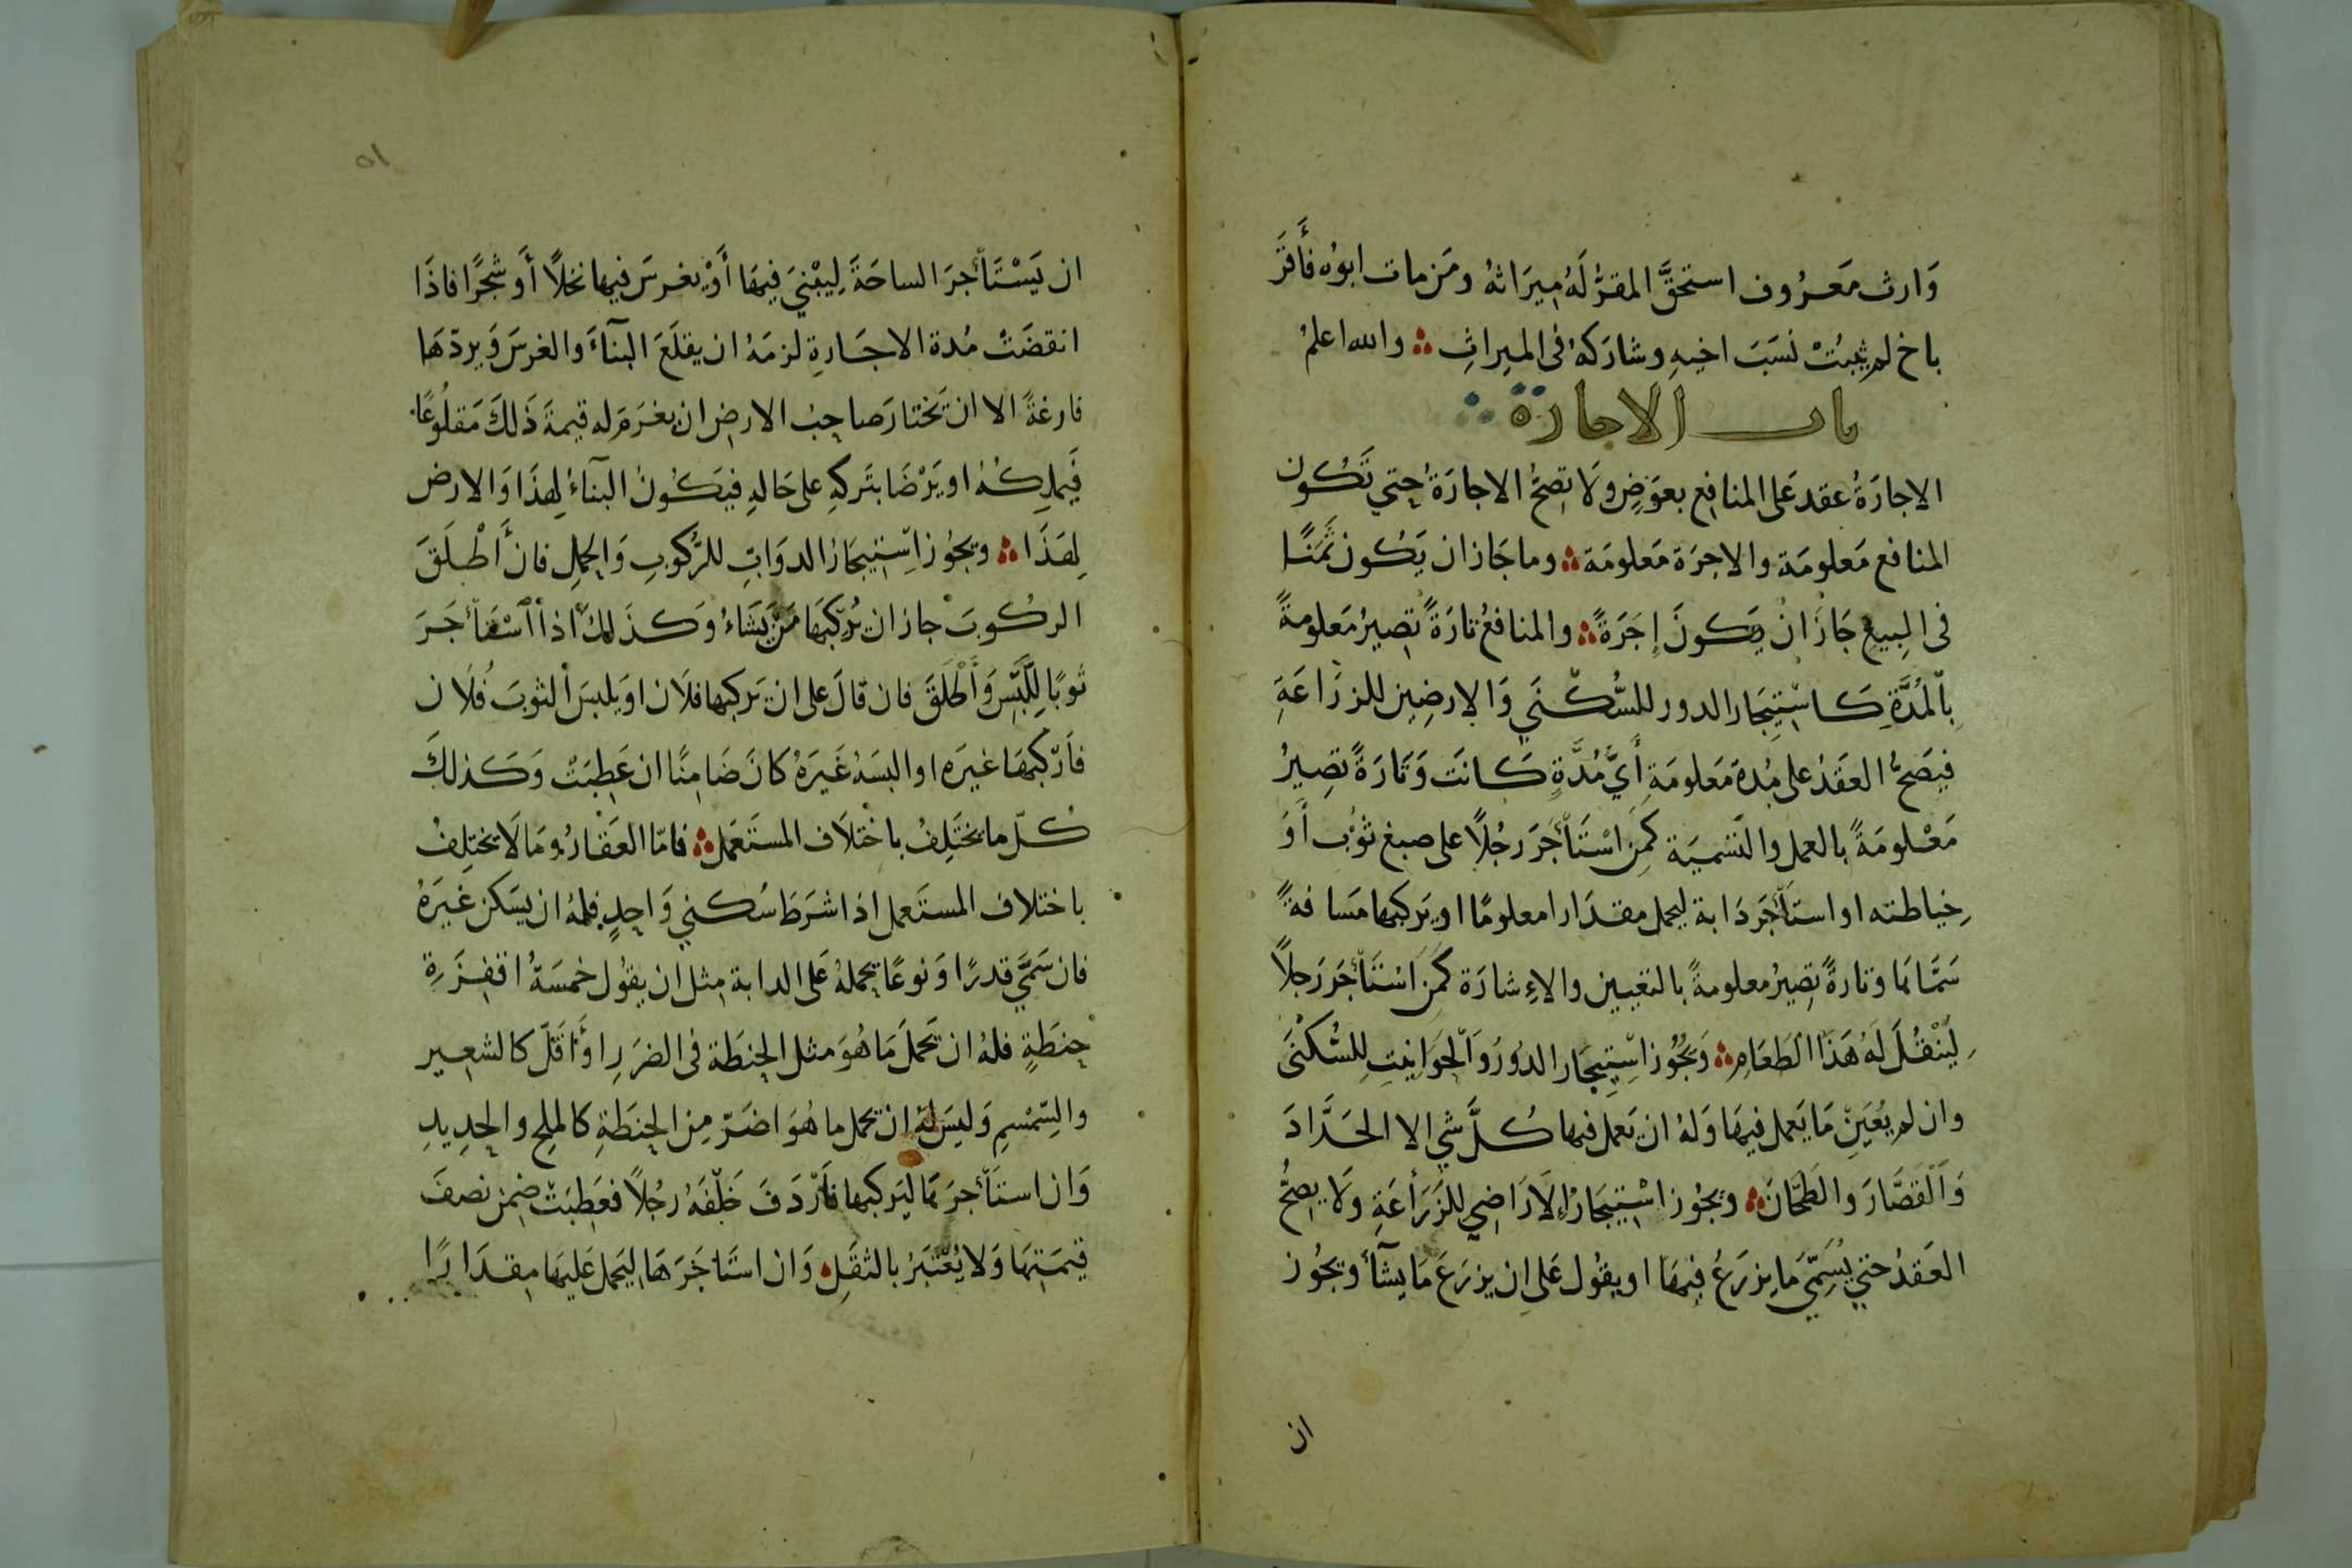 وَارث مَعرُوف استحَقَّ المقرُّ لَهُ مِيرَاثهُ ومَن مات ابوُه فأَقَرَّ
باخ لم يثبُتْ نسَبَ اخيهِ وشارَكهُ فى الميراثِ والله اعلمُ
باب الاجارة
الاجارَةُ عقد عَلى المنافِع بعوَضٍ ولَا تصِحُّ الاجارَةُ حِتي تَكُون
المنافع مَعلومَة والاجرَة مَعلومَة وما جَازان يَكُون ثَمَنًا
فى البِيع جَازَ انْ يَكونَ إجَرَةً والمنافعُ تارَةً تصِيرُ مَعلومةً
بِالمُدَّةِ كَاسْتِيجَار الدور للسُّكْنَي وَالارضِين للزرَاعَةِ
فيَصَحُّ العَقَدُ على مُدة مَعلومَةِ أَيَّ مُدَّةٍ كَانَت وَتَارَةً تصِيرُ
مَعْلومَةً بالعمل والتَسْمِيَة كمَنِ اسْتَأجَرَ رجُلًا على صبغ ثوْبِ أَوْ
خِياطته او استَأجَر دَابة ليحمل مقدَارا معلومًا او يَركبها مَسَافةً
سَمَّاهَا وتارةً تصِيرُ معلومةً بالتعيين والاءِشارَة كَمَن اسْتَأجَر رَجلاً
لِيَنْقُلَ لَهُ هَذَا الطَعَامِ وَيجُوز اسْتِيجَار الدُورَ وَالحَوَانيتِ لِلسُّكْنَى
وان لم يُعَيَنْ مَا يَعمل فيهَا وَلهُ ان يَعمل فيها كُلَّ شيْ الا الحَدَّادَ
وَالقَصَّارَ والطَحَّانَ ويجُوز اسْتِيجَارُ الاَرَاضِي للزَرَاعَةِ ولَا يصِحُّ
العَقدُ حتي يُسَمّيَ مَا يزرَعُ فِيهَا او يقُول عَلى ان يزرَعَ مَا يشآءُ ويجُوز
ان
٥١
ان يَسْتَأجرَ الساحَةَ لِيبْنيَ فِيهَا أَوْ يغرسَ فيها نخلًا أَو شجَرًا فاذَا
انقضَتْ مُدة الاجَارةِ لزمَهُ ان يقلَعَ البنآءَ والغرسَ وَيردّهَا
فارغةً الا ان تَختارَ صاحِبُ الارض ان يغرَمَ له قيمَة ذَلكَ مَقلُوعًا
فَيملِكهُ او يَرْضَا بتَركهِ على حَالهِ فيَكُونُ البَنآءُ لِهذَا وَالارض
لِهَذَا ويجُوز اسْتِيجَارُ الدوَابّ للرُّكوبِ وَالحملِ فانْ أَطْلَقَ
الركُوبَ جاز ان يُرْكبَهَا مَنْ يَشَاءُ وَكذَلكَ اذا اسْتَأجَرَ
ثوبًا لِللُبْسِ وَأَطْلَقَ فان قالَ على ان يَركبها فلَان او يلبسَ الثوبَ فُلَان
فاَرْكبَهَا غيرَه او البسَهُ غَيرَهْ كَانَ ضَامِنًا ان عَطِبَتْ وَكَذلكَ
كُلّ ما يَختَلِفُ باخْتلَاف المستَعمَل فامّا العَقَارُ ومَا لَا يختلِفُ
باختلاف المستَعمل اذا شرَطَ سُكني وَاحِدٍ فلهُ ان يسَكن غيَرَهُ
فان سَمَّي قدرًا وَنوعًا يحملهُ عَلى الدابة مِثل ان يقوُل خمسَةُ اقفِزَةِ
حِنطَةٍ فلهُ ان تَحملَ مَا هُوَ مثل الحِنطَة فى الضَرَرِ اوَ اَقَلّ كالشعِير
والسِّمْسِمِ وَليسَ لهُ ان يحمل ما هُوَ اضَرّ مِن الحِنطَةِ كالملح والحِديدِ
وَان استَأجرَهَا ليَركبها فأرْدَفَ خَلْفَهُ رجُلاً فعَطِبَتْ ضِمن نصفَ
قيمَتِهَا وَلا يُعْتَبَرُ بالثقَلِ وَان استَاجَرَهَا ليَحمل عَليهَا مِقدَارًا